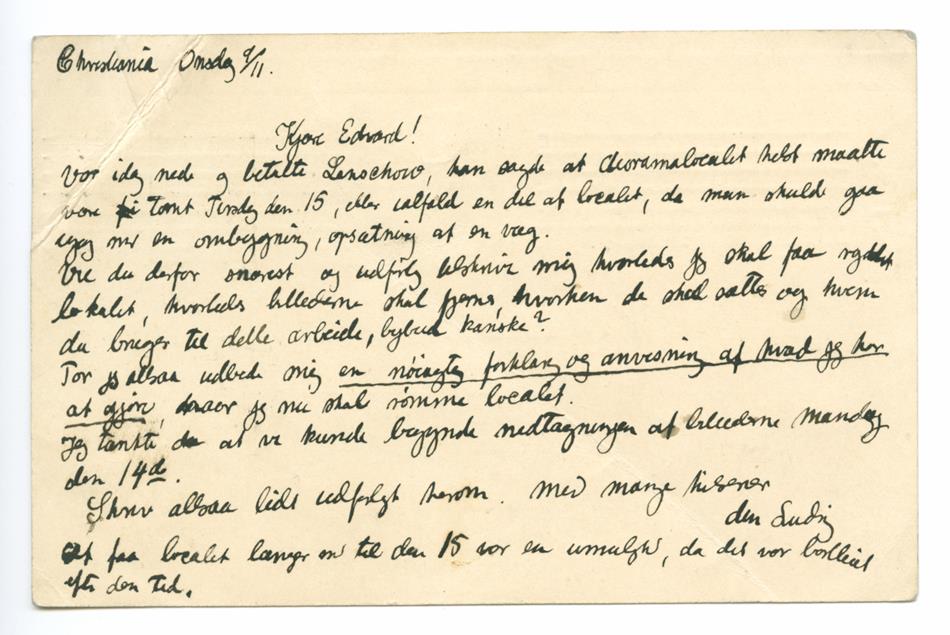 Christiania Onsdag 9/11.
Kjære Edvard!
Var idag nede og betalte Lenschow, han sagde at dioramalocalet helst maatte
være tomt Tirsdag den 15, eller ialfald en del af localet, da man skulde gaa
igang med en ombygning, opsætning af en væg.
Vil du derfor snarest og udførlig tilskrive mig hvorledes jeg skal faa ryddet
lokalet, hvorledes billederne skal fjernes hvorhen de skal sættes og hvem
du bruger til dette arbeide, bybud kanske?
Tør jeg altsaa udbede mig en nøiagtig forklaring og anvisning af hvad jeg har
at gjøre, naar jeg nu skal rømme localet.
Jeg tænkte at vi kunde begynde nedtagningen af billederne mandag
den 14de.
Skriv altsaa lidt udførligt herom. Med mange hilsener
din Ludvig
At faa localet længer end til den 15 var en umulighed, da det var bortleiet
efter den tid.